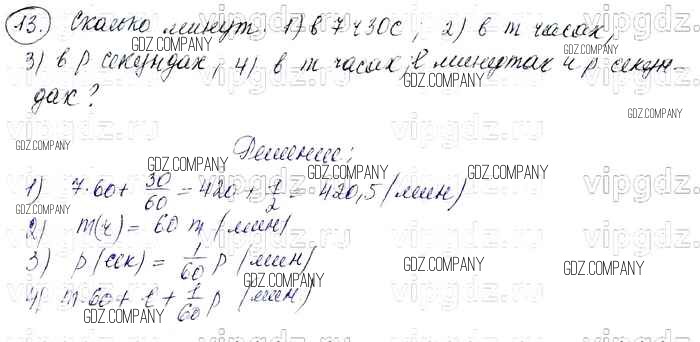 13. Сколько минут: 1) в 7 ч 30 с; 2) в m часах,
3) в p секундах, 4) в m часах, ℓ минутах и p секун-
дах?
Решение:
1) 7·60+ 30/60 = 420 + 1/2 = 420,5 (мин)
2) m(ч) = 60 m (мин)
3) p (сек) = 1/60 p (мин)
4) m·60 + ℓ + 1/60 p (мин)
GDZ.COMPANY
vipgdz.ru